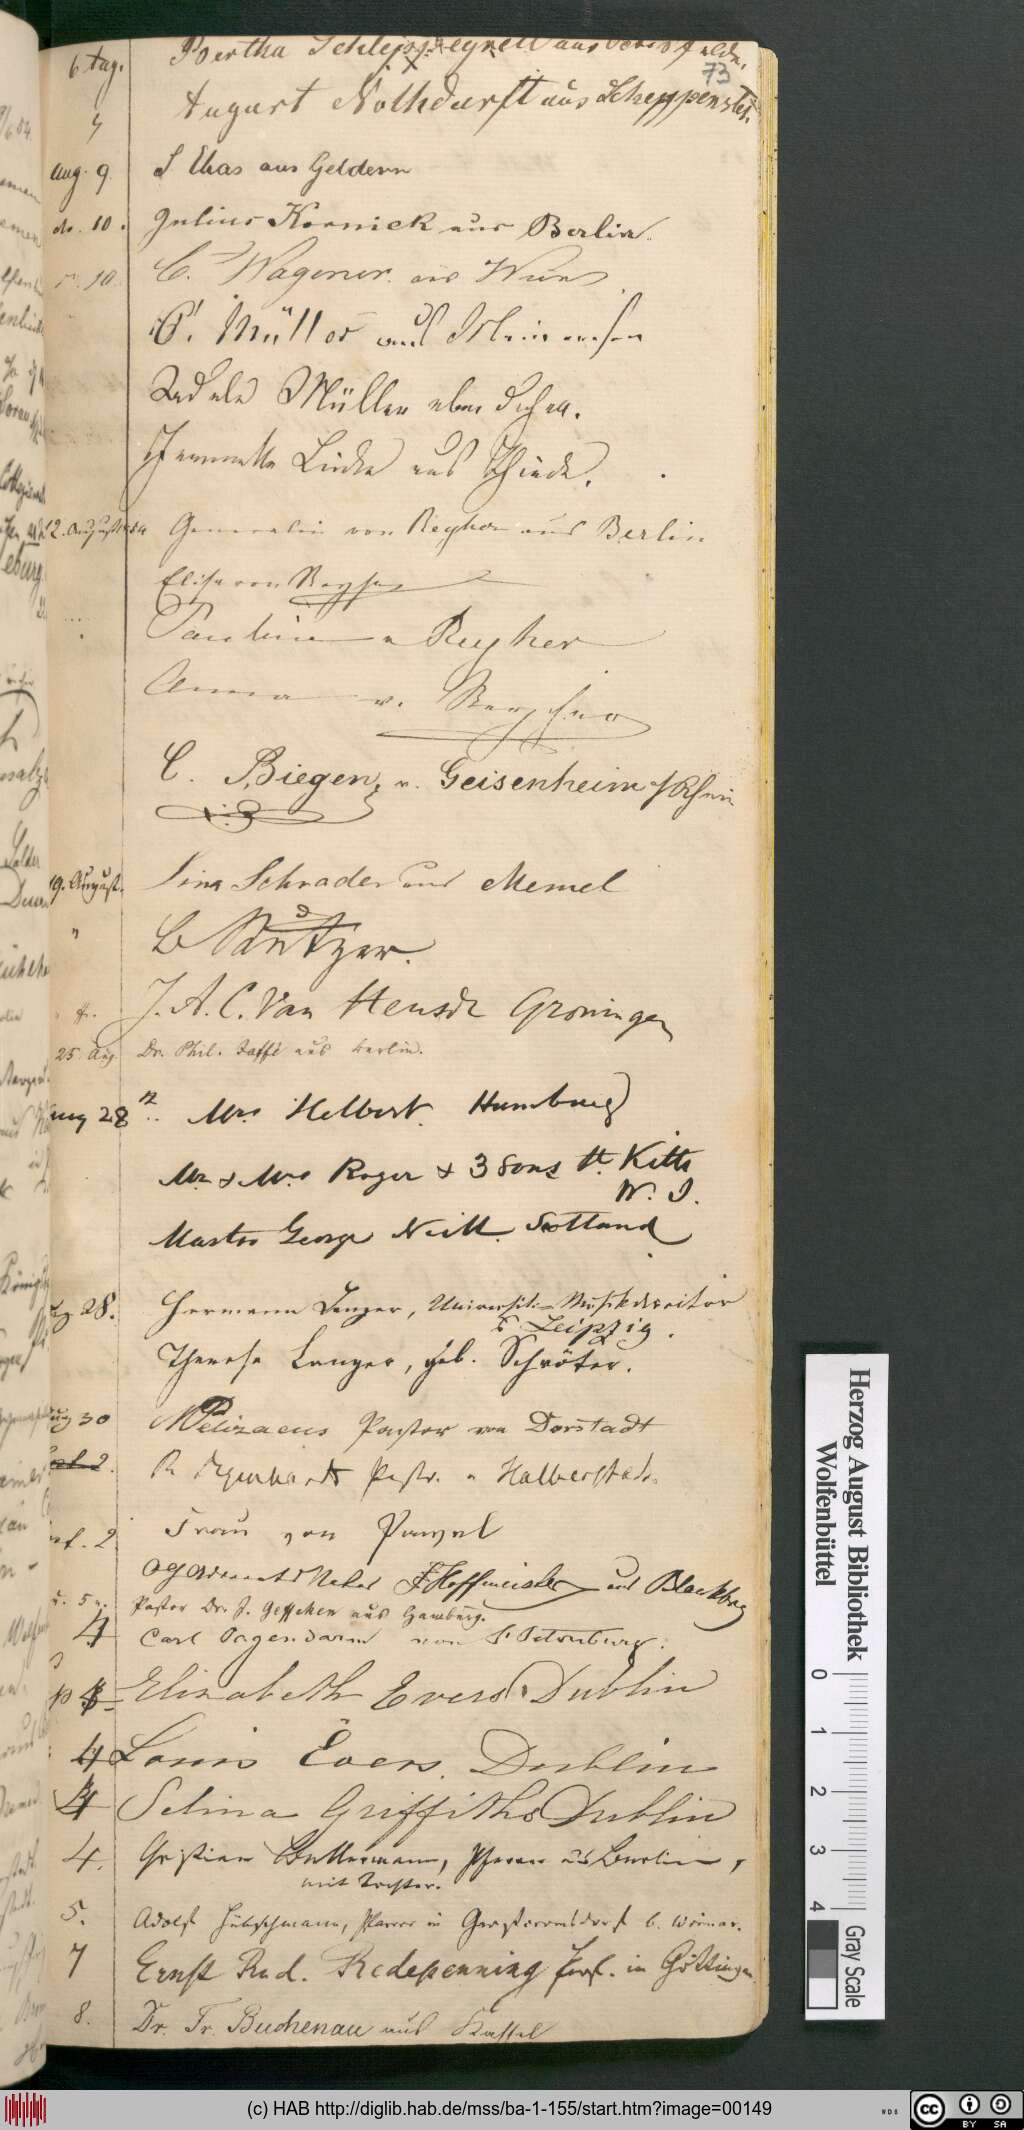 6 Aug. Bertha
73
August Nothdurft aus Scheppenstet.
Aug. 9. S. Elias aus Geldern
do. 10. Julius Kornick aus Berlin.
10. C. Wagener. aus Wien
C. Müller aus
Adele Müller ebendaher.
Jeannette Lincke aus Thiede.
12. August 1854 Generalin von Reyher aus Berlin
Elise von Reyher
Pauline v Reyher
Anna v. Reyher
C. Biegen, v. Geisenheim / Rhein
19. August. Lina Schrader aus Memel
"
J. A. C. Van Heusde Groningen
25 Aug Dr. Phil. Jaffé aus Berlin.
Aug 28 Mrs Helbert. Hamburg
Mr & Mrs Roger & 3 Sons St. Kitts
W. I.
Master George Neill Scotland
Aug 28. Hermann Langer, Universitäts-Musikdirector
Leipzig.
Therese Langer, geb. Schröter.
Aug 30 Pelizaeus Pastor von Dorstadt
2. Pastr. Halberstadt.
2 Frau von Pawel
F Hoffmeister aus Blankbrg
5 Pastor Dr. J. Geffcken aus Hamburg.
4 Carl von St Petersburg.
Elisabeth Evers Dublin
4 Louis Evers. Dublin
4 Selina Griffiths Dublin
4. Christian Buttermann, Pfarrer aus Berlin,
mit Tochter.
5. Adolf Hübschmann, Pfarrer in b. Weimar.
7 Ernst Rud. Redepenning Prof. in Göttingen
8. Dr. Fr. Buchenau aus Kassel
Herzog August Bibliothek
Wolfenbüttel
0 1 2 3 4
Gray Scale
(c) HAB http://diglib.hab.de/mss/ba-1-155/start.htm?image=00149
WDB
cc BY SA